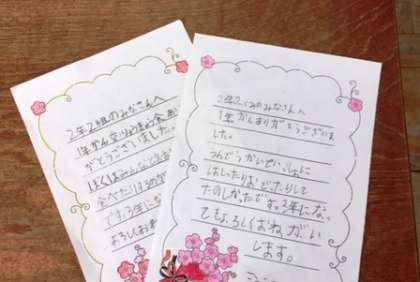 2年2組のみなさんへ
1年かんありがとうござ
がとうございました。
ぼくはみんなと
食べたり
です。3年にな
よろしくおね
2年2くみのみなさんへ
1年かんありがとうございま
した。
うんどうかいでいっしょに
はしったりおどったりして
たのしかったです。3年になっ
てもよろしくおねがい
します。